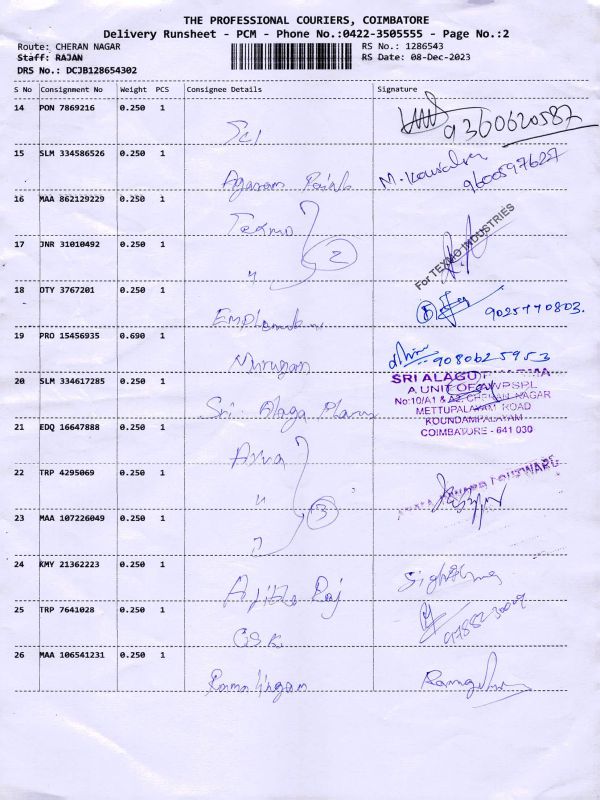 THE PROFESSIONAL COURIERS, COIMBATORE
Delivery Runsheet - PCM - Phone No.:0422-3505555 - Page No.:2
Route: CHERAN NAGAR RS No.: 1286543
Staff: RAJAN RS Date: 08-Dec-2023
DRS No.: DCJB128654302
S No Consignment No Weight PCS Consignee Details Signature
14 PON 7869216 0.250 1
9360620587
15 SLM 334586526 0.250 1
Agaram M. 9600597627
16 MAA 862129229 0.250 1
Texmo For TEXMO INDUSTRIES
17 JNR 31010492 0.250 1
2
"
18 DTY 3767201 0.250 1
9025770803.
19 PRO 15456935 0.690 1
Murugan 9080625953
20 SLM 334617285 0.250 1
Sri Alaga Pharma
SRI ALAGU PHARMA
A UNIT OF
No:10/A1 & A2, CHERAN NAGAR
METTUPALAYAM ROAD
KOUNDAMPALAYAM
COIMBATORE - 641 030
21 EDQ 16647888 0.250 1
22 TRP 4295069 0.250 1
"
3
23 MAA 107226049 0.250 1
24 KMY 21362223 0.250 1
Raj
25 TRP 7641028 0.250 1
26 MAA 106541231 0.250 1
Ramalingam